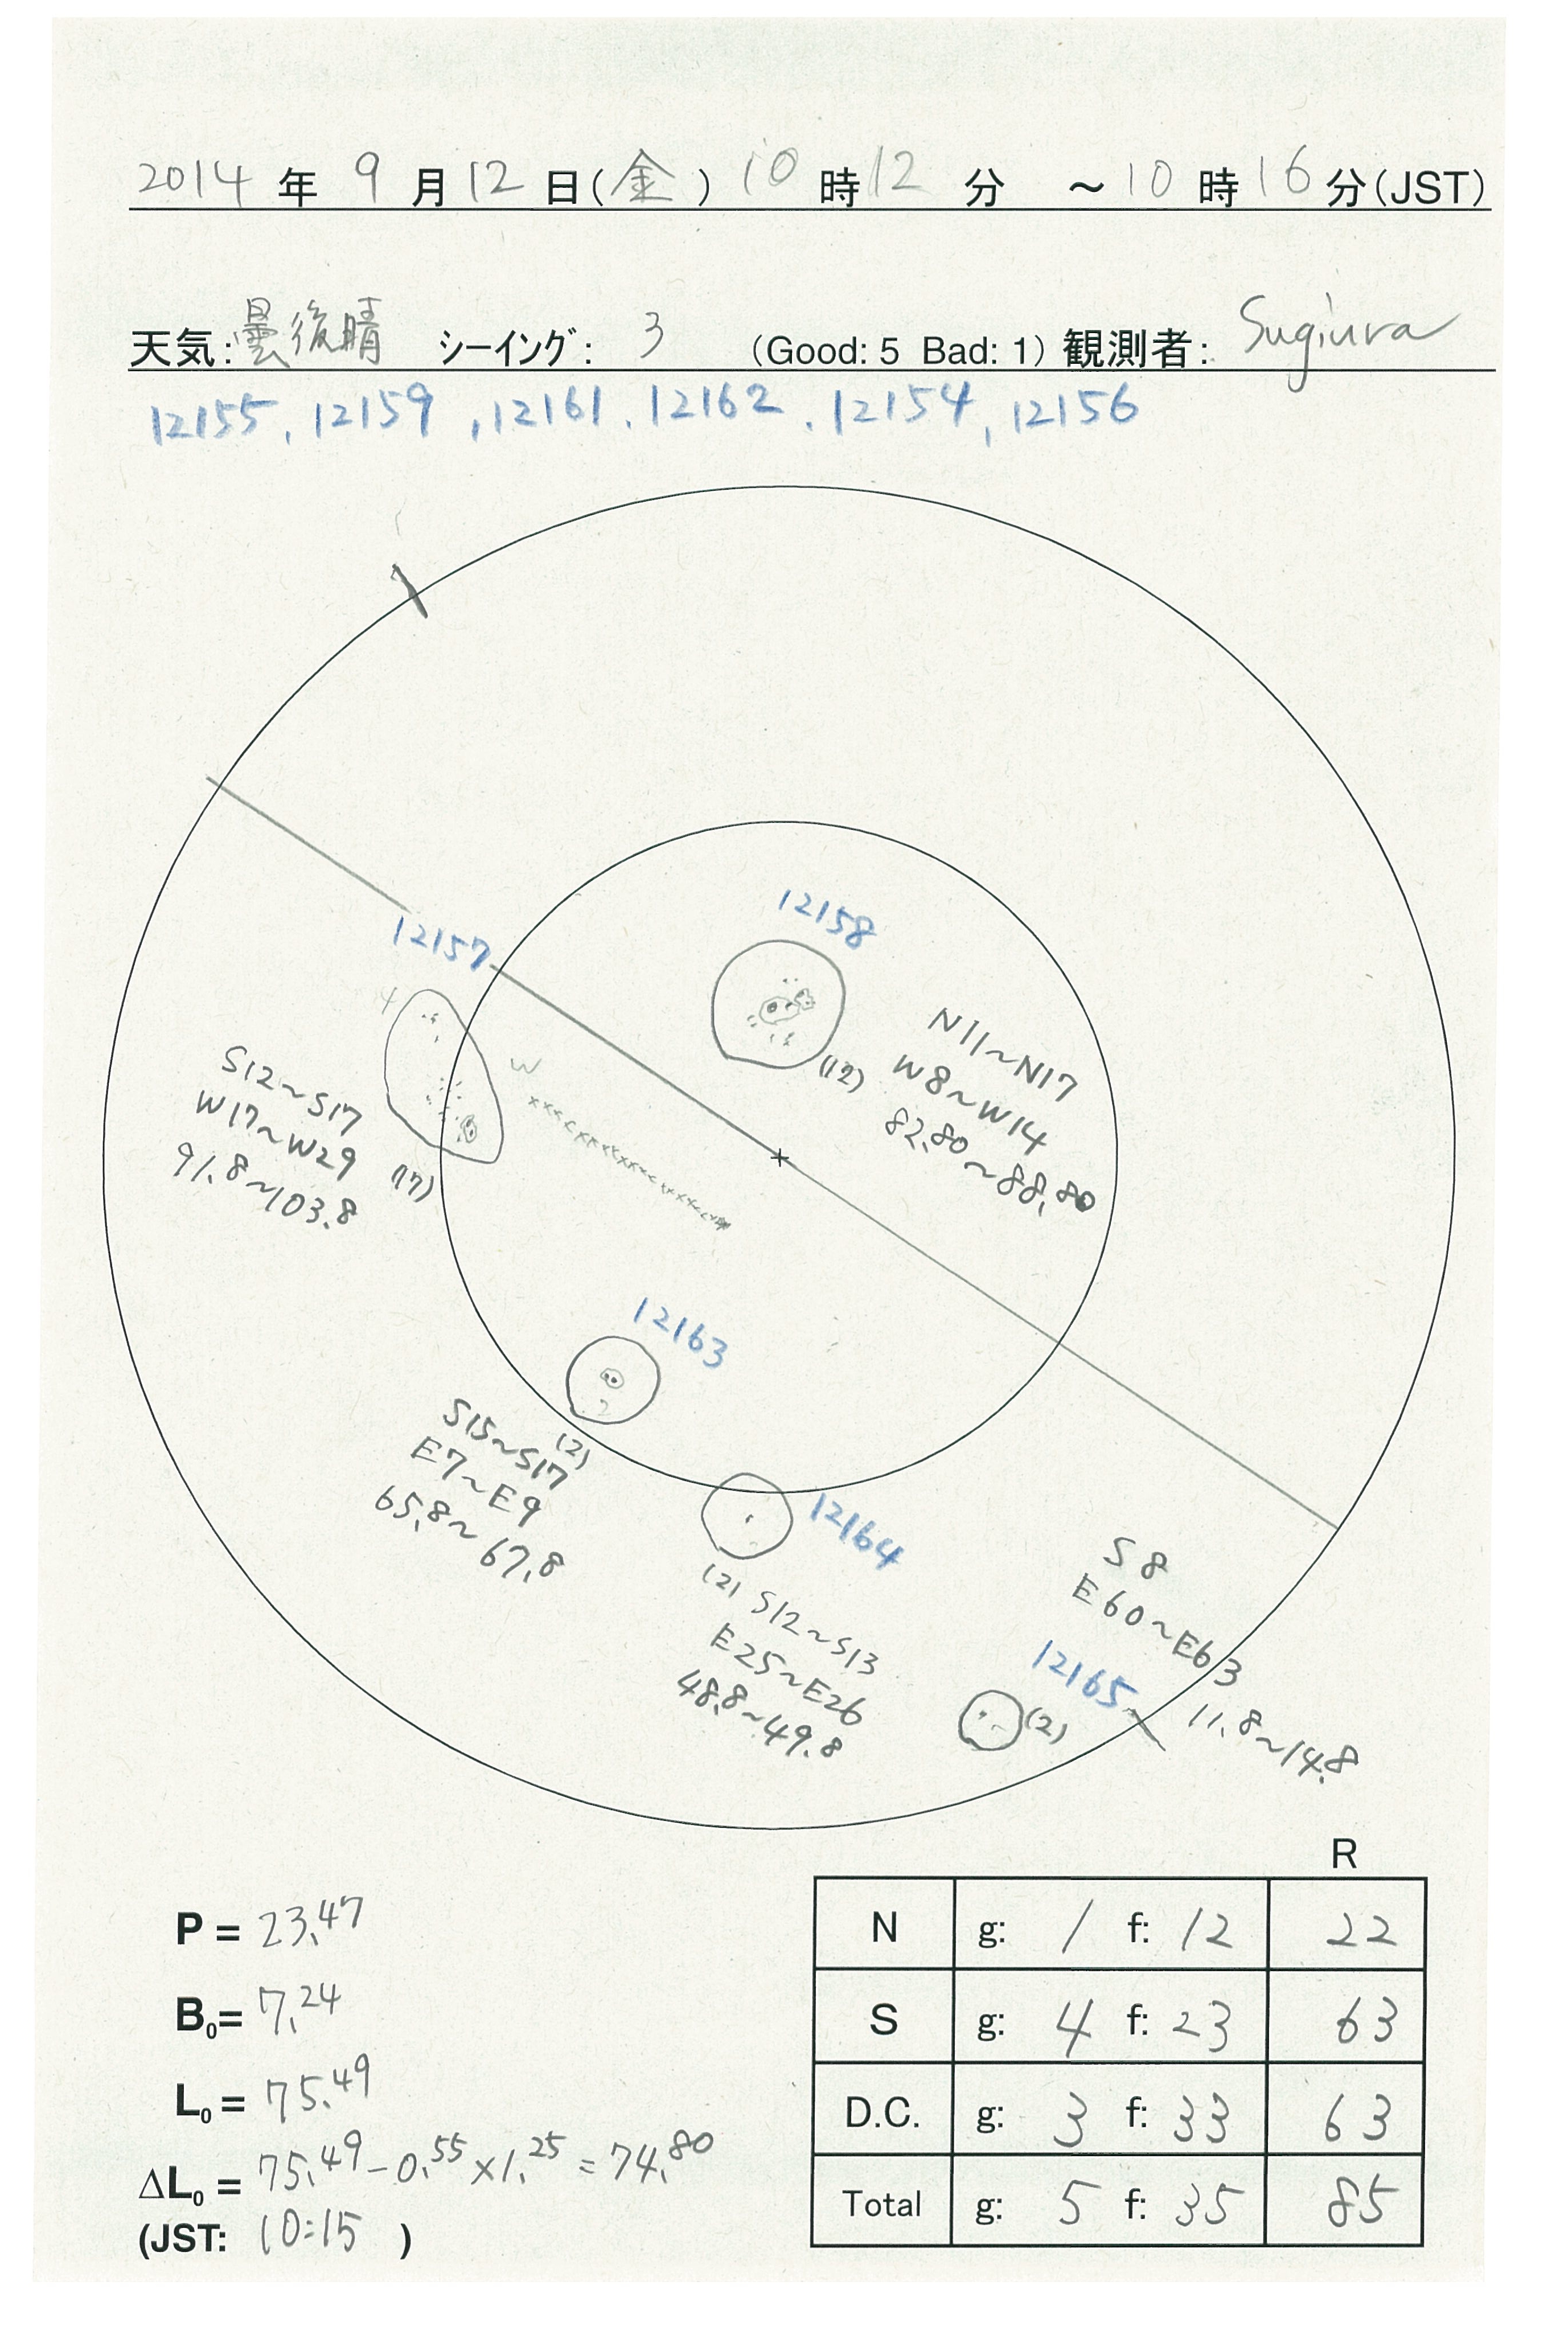 2014 年 9 月 12 日(金) 10 時 12 分 ～ 10 時 16 分(JST)
天気: 曇後晴 シーイング: 3 (Good: 5 Bad: 1) 観測者: Sugiura
12155, 12159, 12161, 12162, 12154, 12156
12158
12157
N11~N17
W8~W14
82.80~88.80
(12)
W
S12~S17
W17~W29
91.8~103.8
(17)
12163
S15~S17
(2)
E7~E9
65.8~67.8
12164
(2) S12~S13
E25~E26
48.8~49.8
S8
E60~E63
12165
11.8~14.8
(2)
R
P = 23.47
N g: 1 f: 12 22
B0= 7.24
S g: 4 f: 23 63
L0= 75.49
D.C. g: 3 f: 33 63
ΔL0 = 75.49-0.55×1.25=74.80
Total g: 5 f: 35 85
(JST: 10:15 )